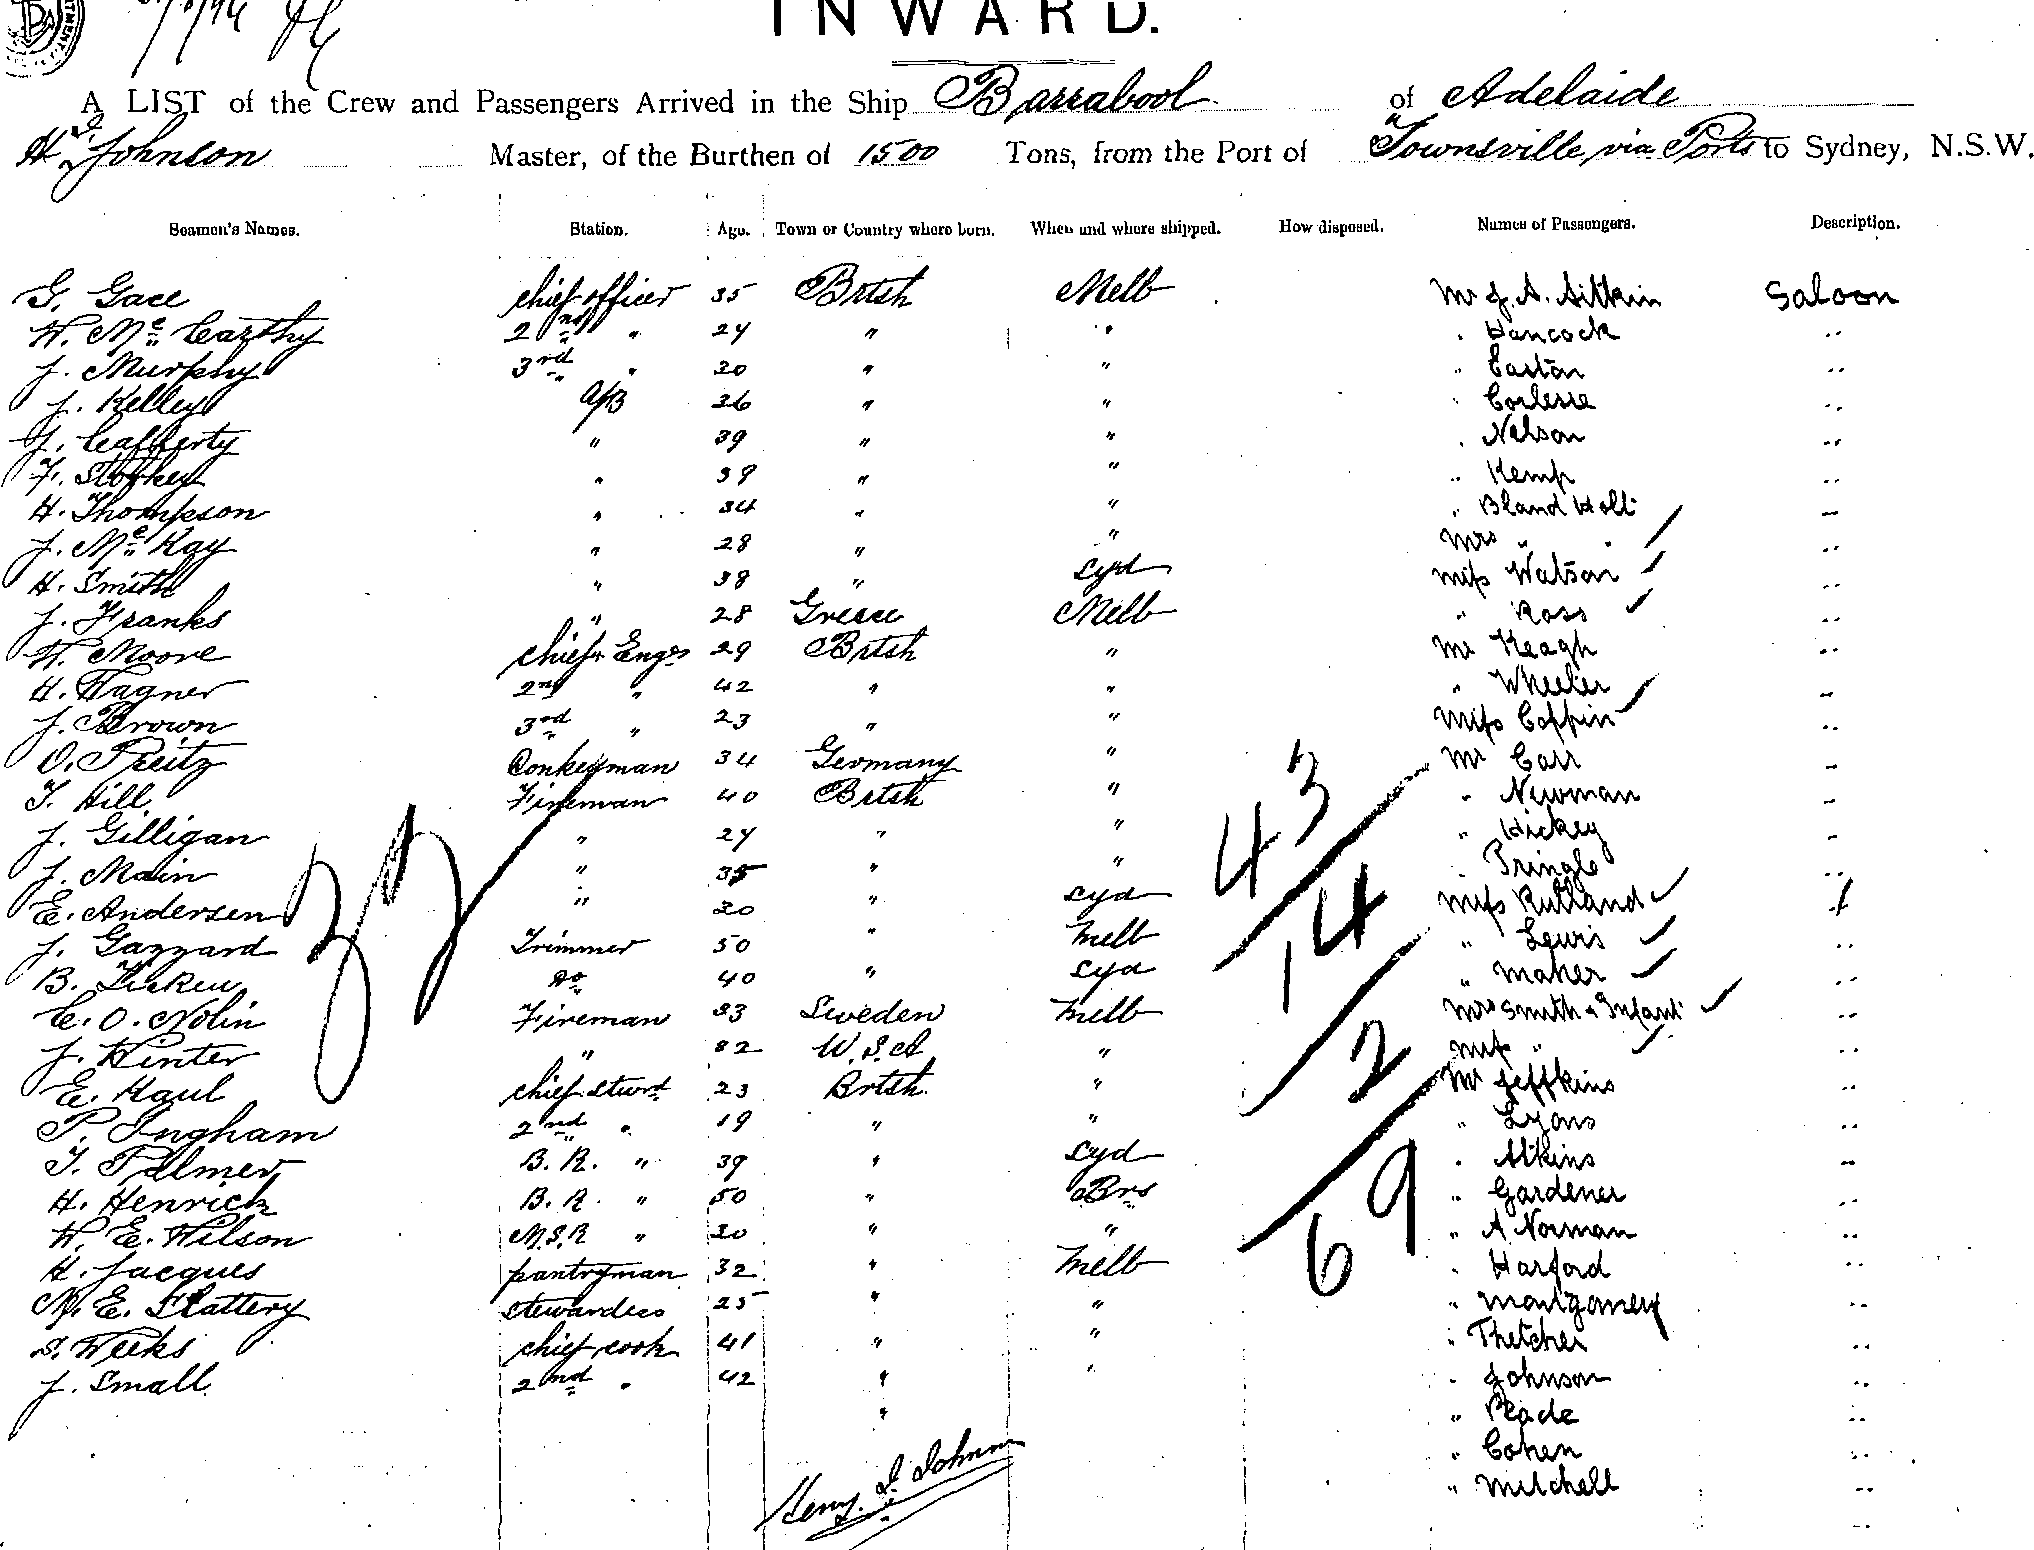 INWARD.
A LIST of the Crew and Passengers Arrived in the Ship Barrabool of Adelaide
H. I. Johnson Master, of the Burthen of 1500 Tons, from the Port of Townsville via Ports to Sydney, N.S.W.
Seamen's Names. Station. Age. Town or Country where born. When and where shipped. How disposed. Names of Passengers. Description.
G. Gace chief officer 35 Brtsh Melb Mr J. A. Aitkin Saloon
W. Mc Carthy 2nd " 24 " " " Hancock "
J. Murphy 3rd " 30 " " " Easton "
J. Kelley A/B 36 " " " Corlesse "
J. Cafferty " 39 " " " Nelson "
F. Storkey " 39 " " " Kemp "
H. Thompson " 34 " " " Bland Holt "
J. Mc Kay " 28 " " Mrs " " "
H. Smith " 38 " Syd Miss Watson "
J. Franks " 28 Greece Melb " Ross "
W. Moore chief Engr 29 Brtsh " Mr Keagh "
H. Wagner 2nd " 42 " " " Wheeler "
J. Brown 3rd " 23 " " Miss Coffin "
O. Preitz Donkeyman 34 Germany " Mr Carr "
T. Hill Fireman 40 Brtsh " " Newman "
J. Gilligan " 24 " " " Hickey "
J. Main " 35 " " " Pringle "
E. Andersen " 30 " Syd Miss Rutland "
J. Gazzard Trimmer 50 " Melb " Lewis "
B. do 40 " Syd " Maher "
E. O. Nolin Fireman 33 Sweden Melb Mrs Smith & Infant "
J. Winter " 32 U.S.A " Miss " "
E. Haul chief Stwrd 23 Brtsh " Mr Jeffkins "
P. Ingham 2nd " 19 " " " Lyons "
T. Palmer B. R. " 39 " Syd " Atkins "
H. Henrich B. R. " 50 " Brs " Gardener "
W. E. Wilson M.S.R " 30 " " " A Norman "
H. Jacques pantryman 32 " Melb " Harford "
M. E. Slattery stewardess 25 " " " Montgomery "
S. Weeks chief cook 41 " " " Thetcher "
J. Small 2nd " 42 " " " Johnson "
" " Reade "
" Cohen "
" Mitchell "
Henry I. Johnson
32
43
14
2
69